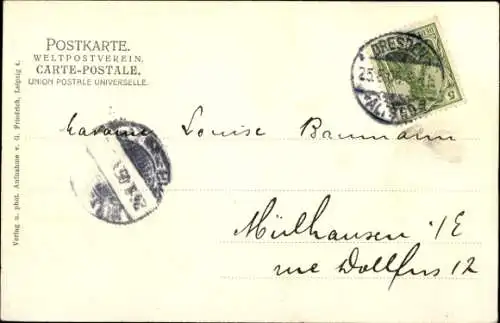 POSTKARTE.
WELTPOSTVEREIN.
CARTE-POSTALE.
UNION POSTALE UNIVERSELLE.
DRESDEN
ALTST.
Madame Louise Baumann
Mülhausen i/E
rue Dollfus 12
Verlag u. phot. Aufnahme v. G. Friedrich, Leipzig 4.